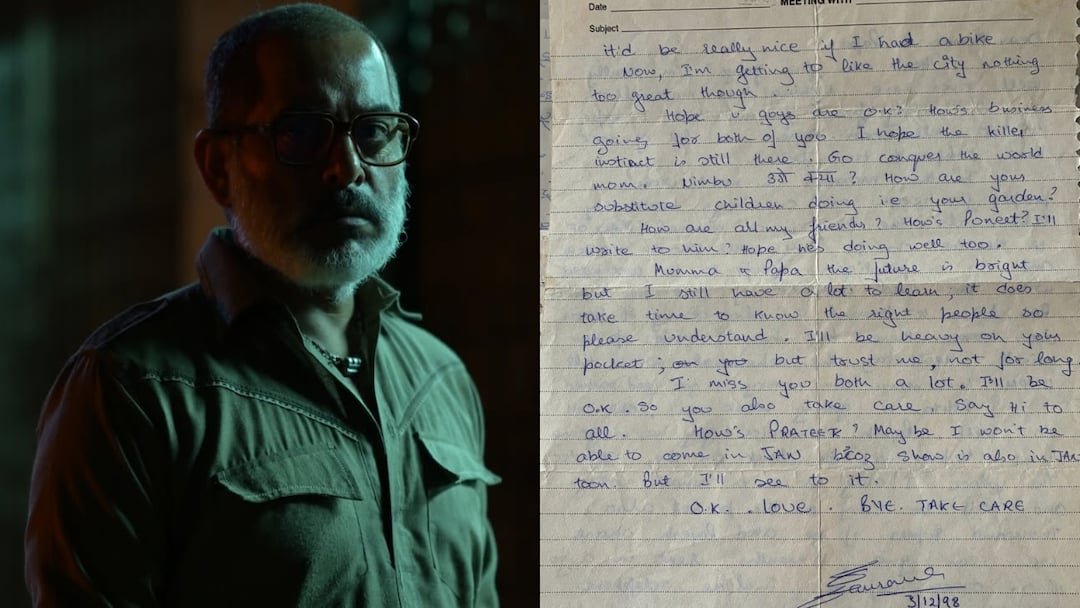 Date
MEETING WITH
Subject
it'd be really nice if I had a bike
Now, I'm getting to like the city nothing
too great though ..
Hope u guys are O.K? How's business
going for both of you I hope the killer
instinct is still there. Go conquer the world
mom. Nimbu उगे क्या? How are your
substitute children doing i.e your garden?
How are all my friends? How's Poneet? I'll
write to him? Hope he's doing well too.
Momma & Papa the future is bright
but I still have a lot to learn, it does
take time to know the right people so
please understand. I'll be heavy on your
pocket; on you but trust me, not for long
I miss you both a lot. I'll be
O.K. So you also take care. Say Hi to
all. How's PRATEEK? May be I won't be
able to come in JAN bcoz Show is also in JAN
toon. But I'll see to it.
O.K. . LOVE . BYE. TAKE CARE
3/12/98